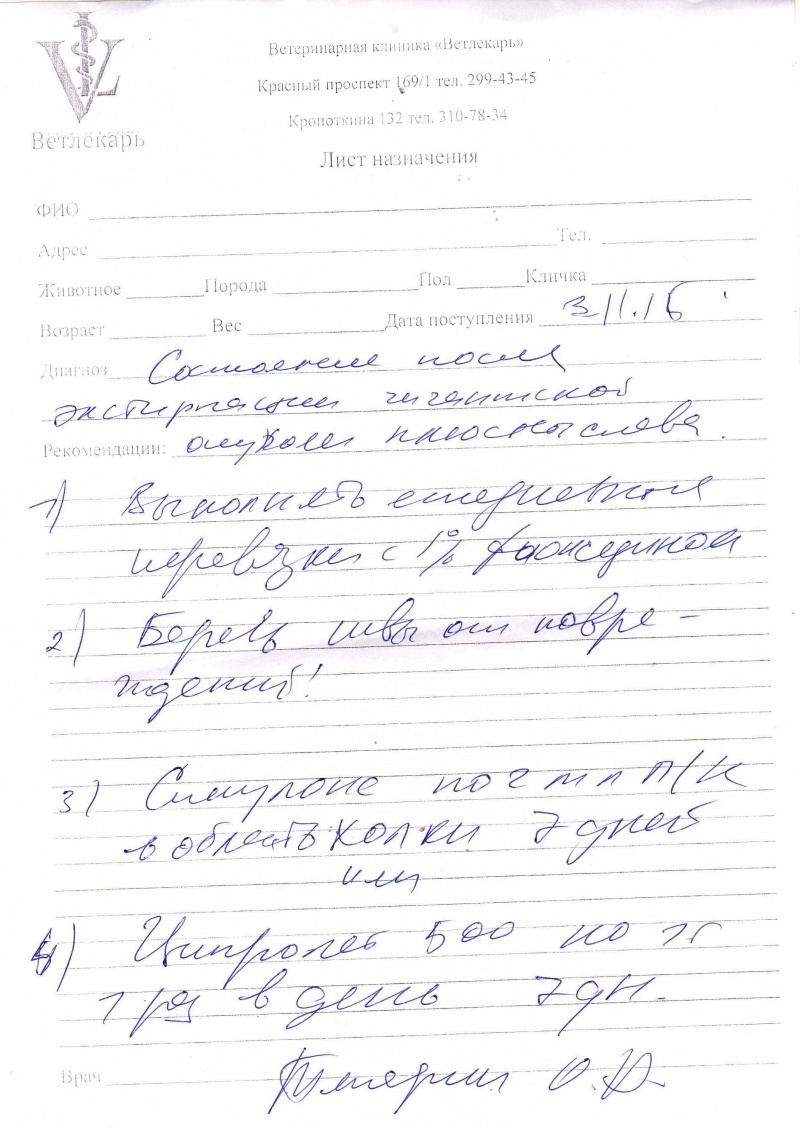 Ветлекарь
Ветеринарная клиника «Ветлекарь»
Красный проспект 169/1 тел. 299-43-45
Кропоткина 132 тел. 310-78-34
Лист назначения
ФИО
Адрес Тел.
Животное Порода Пол Кличка
Возраст Вес Дата поступления 3 11.16
Диагноз Состояние после
экстирпации гигантской
Рекомендации: опухоли плюсны слева.
1) Выполнять ежедневные
перевязки с 1%
2) Беречь швы от повре-
ждений!
3) по 2 мл П/К
в область холки 7 дней
или
4) Ципролет 500 по 1т
1 раз в день 7 дн.
Врач О.